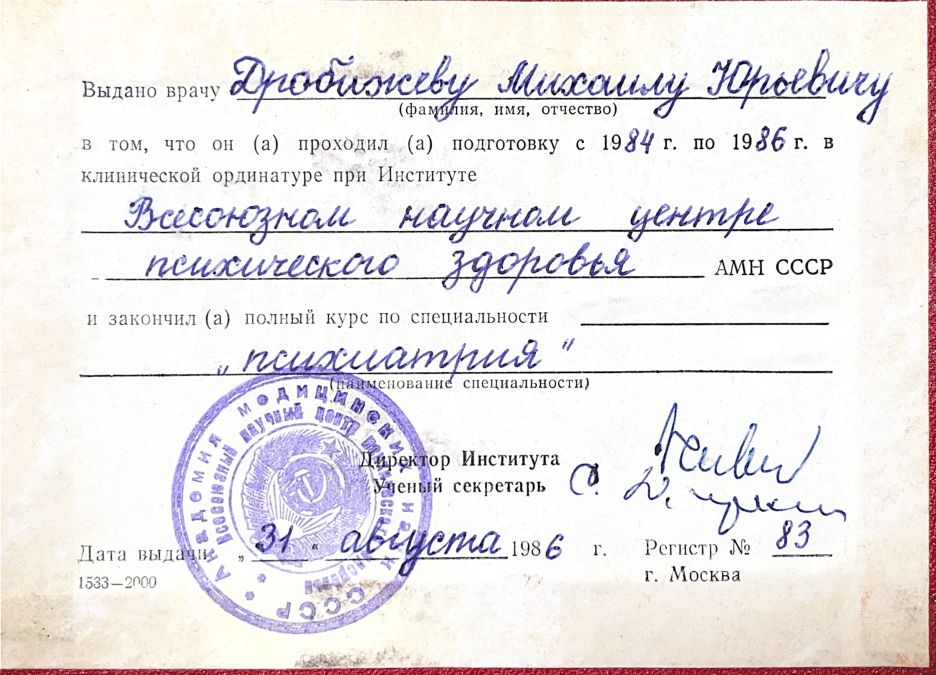 Выдано врачу Дробижеву Михаилу Юрьевичу
(фамилия, имя, отчество)
в том, что он (а) проходил (а) подготовку с 1984 г. по 1986 г. в
клинической ординатуре при Институте
Всесоюзном научном центре
психического здоровья АМН СССР
и закончил (а) полный курс по специальности
„психиатрия"
(наименование специальности)
Директор Института
Ученый секретарь
Дата выдачи „31" августа 1986 г. Регистр № 83
1533—2000 г. Москва
Академия медицинских наук СССР
Всесоюзный научный центр психического здоровья